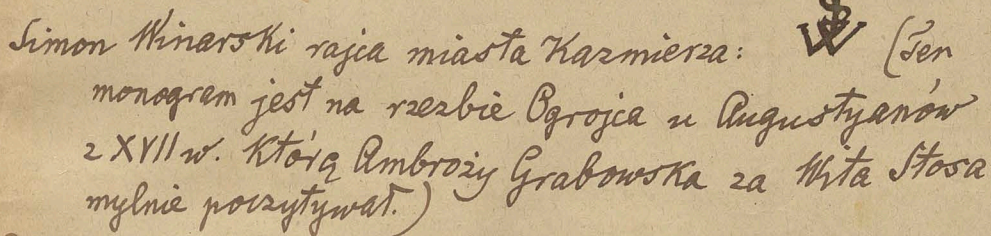 Simon Winarski rajca miasta Kazmierza: SW (ten
monogram jest na rzezbie Ogrojca u Augustyanów
z XVII w. którą Ambroży Grabowska za Wita Stosa
mylnie poczytywał.)